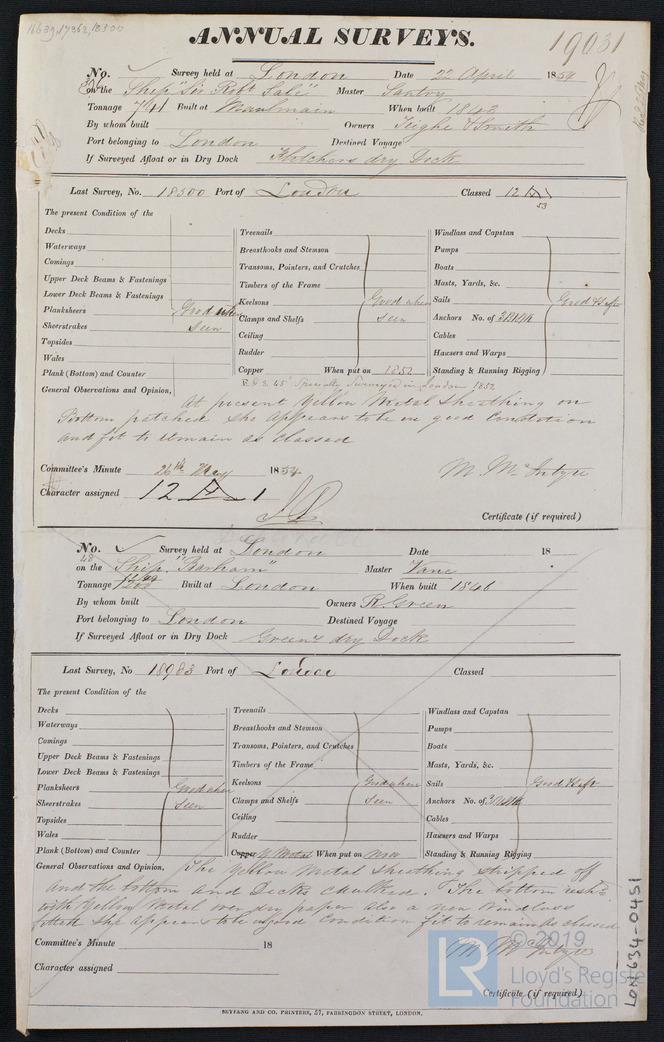 16639, 17362, 18300
ANNUAL SURVEYS.
19031
No. Survey held at London Date 22 April 1854
on the Ship "Sir Robt Sale" Master Saxby
Tonnage 741 Built at Maulmain When built 1843
By whom built Owners Tighe & Smith
Port belonging to London Destined Voyage
If Surveyed Afloat or in Dry Dock Fletchers dry Dock
Last Survey, No. 18300 Port of London Classed 12 A 1
53
The present Condition of the
Decks
Waterways
Comings
Upper Deck Beams & Fastenings
Lower Deck Beams & Fastenings
Planksheers Good when
Sheerstrakes seen
Topsides
Wales
Plank (Bottom) and Counter
General Observations and Opinion,
Treenails
Breasthooks and Stemson
Transoms, Pointers, and Crutches
Timbers of the Frame
Keelsons Good when
Clamps and Shelfs seen
Ceiling
Rudder
Copper When put on 1852
Windlass and Capstan
Pumps
Boats
Masts, Yards, &c.
Sails Good & Suff
Anchors No. of
Cables
Hawsers and Warps
Standing & Running Rigging
Specially Surveyed in London 1852
At present Yellow Metal Sheathing on
Bottom patched she appears to be in good Condition
and fit to remain as Classed
Committee's Minute 26th May 1854
M. McIntyre
Character assigned 12 A 1
Certificate (if required)
No. Survey held at London Date 18
48
on the Ship "Barham" Master Vane
Tonnage Built at London When built 1846
By whom built Owners R. Green
Port belonging to London Destined Voyage
If Surveyed Afloat or in Dry Dock Green's dry Dock
Last Survey, No 18983 Port of London Classed
The present Condition of the
Decks
Waterways
Comings
Upper Deck Beams & Fastenings
Lower Deck Beams & Fastenings
Planksheers Good when
Sheerstrakes seen
Topsides
Wales
Plank (Bottom) and Counter
General Observations and Opinion,
Treenails
Breasthooks and Stemson
Transoms, Pointers, and Crutches
Timbers of the Frame
Keelsons Good when
Clamps and Shelfs seen
Ceiling
Rudder
Copper Y Metal When put on Now
Windlass and Capstan
Pumps
Boats
Masts, Yards, &c.
Sails Good & Suft
Anchors No. of
Cables
Hawsers and Warps
Standing & Running Rigging
The Yellow Metal Sheathing stripped off
and the bottom and Decks Caulked. The bottom resh'd
with Yellow Metal over dry paper also a new Windlass
fitted she appears to be in good Condition fit to remain as Classed
Committee's Minute 18
M. McIntyre
Character assigned
Certificate (if required)
SEYFANG AND CO. PRINTERS, 57, FARRINGDON STREET, LONDON.
LON634-0451
LR
© 2019
Lloyd's Register
Foundation